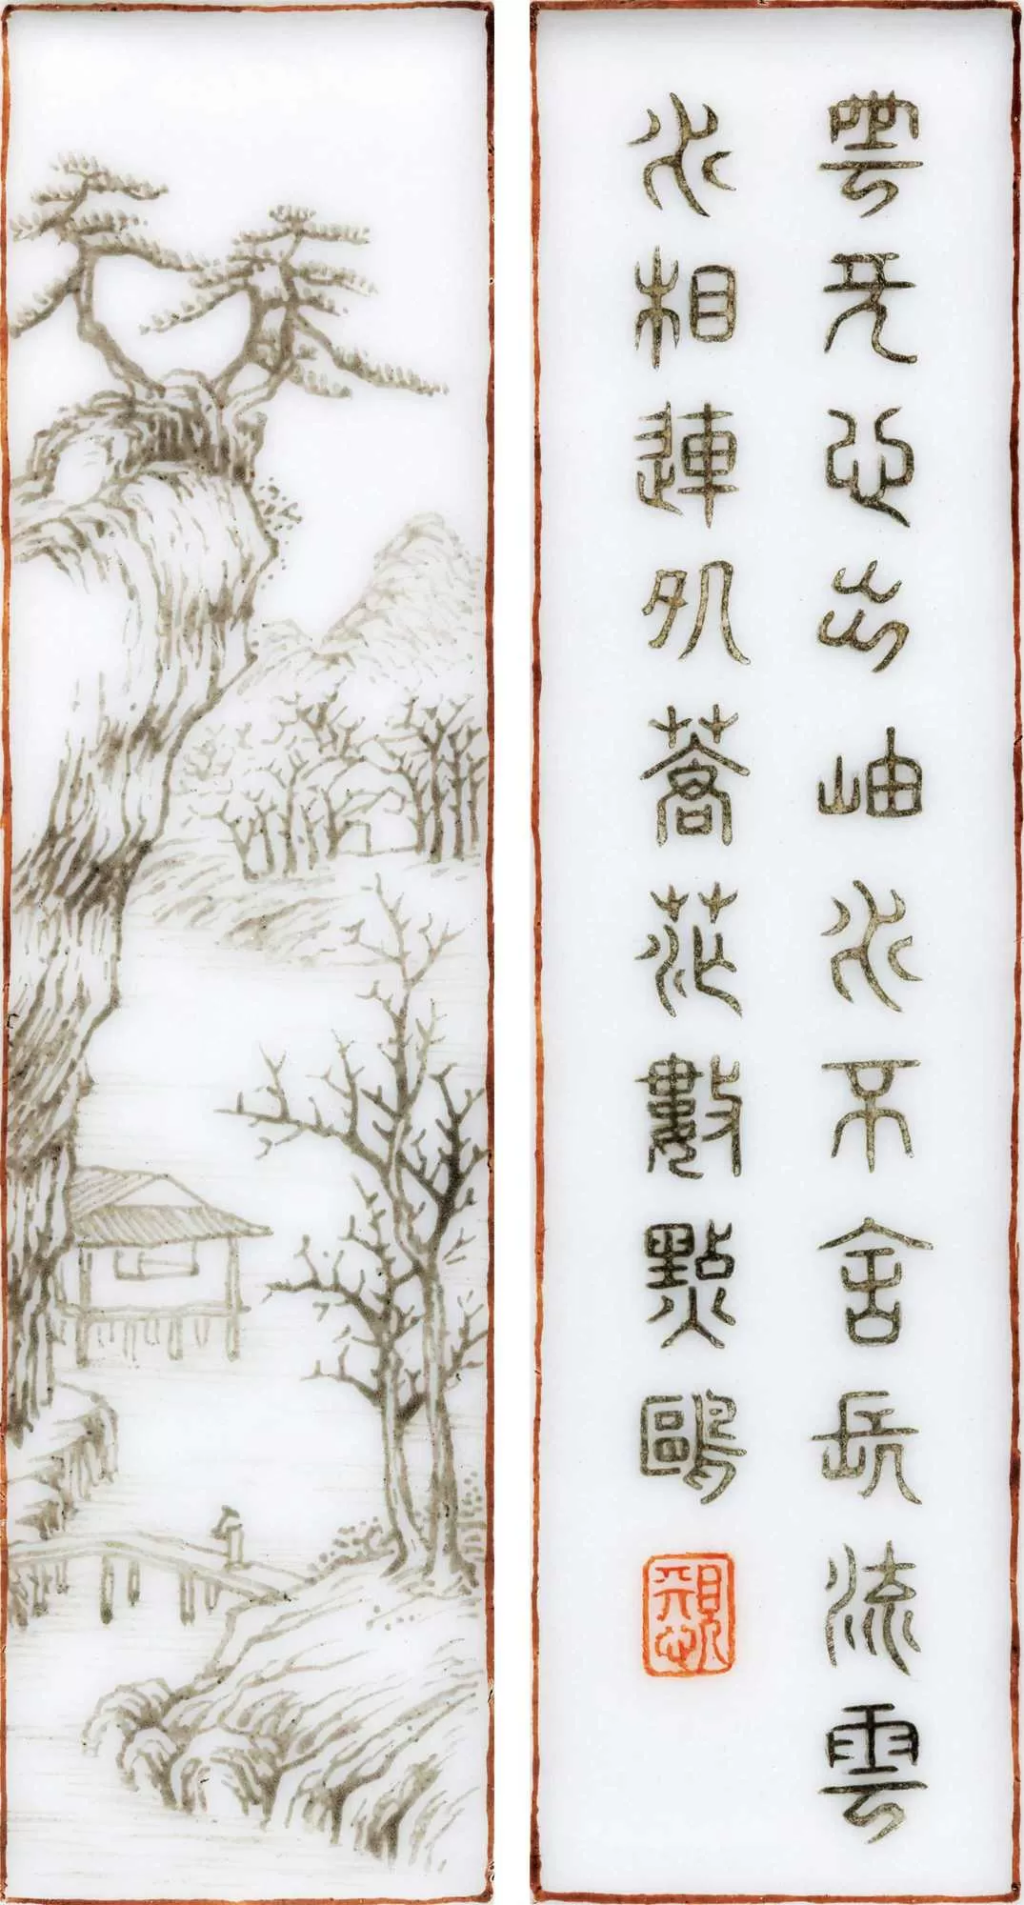 雲无心出岫水不舍長流雲
水相連処蒼茫數點鷗